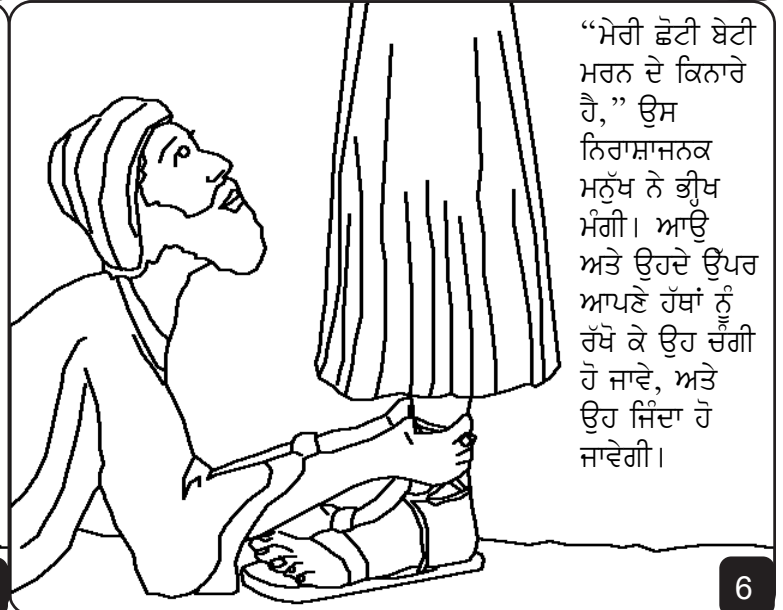 “ਮੇਰੀ ਛੋਟੀ ਬੇਟੀ
ਮਰਨ ਦੇ ਕਿਨਾਰੇ
ਹੈ,” ਉਸ
ਨਿਰਾਸ਼ਾਜਨਕ
ਮਨੁੱਖ ਨੇ ਭੀਖ
ਮੰਗੀ। ਆਉ
ਅਤੇ ਉਹਦੇ ਉੱਪਰ
ਆਪਣੇ ਹੱਥਾਂ ਨੂੰ
ਰੱਖੋ ਕੇ ਉਹ ਚੰਗੀ
ਹੋ ਜਾਵੇ, ਅਤੇ
ਉਹ ਜਿੰਦਾ ਹੋ
ਜਾਵੇਗੀ।
6